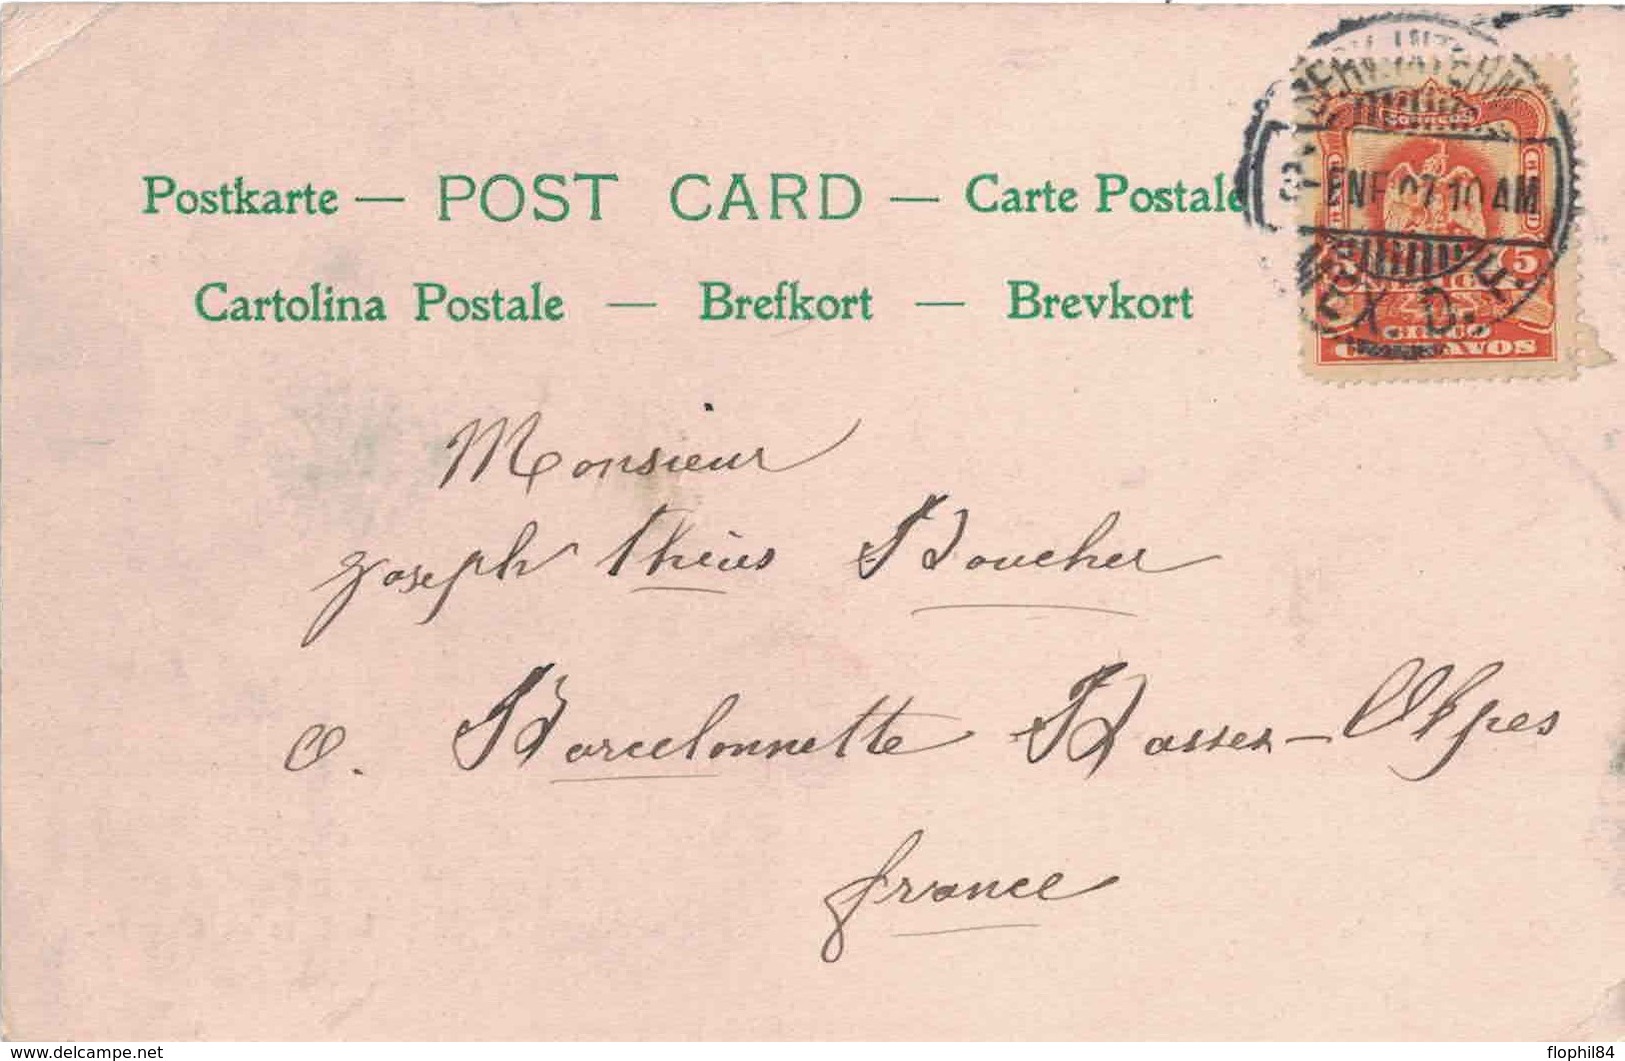 Postkarte — POST CARD — Carte Postale
Cartolina Postale — Brefkort — Brevkort
CORREOS
ENE 07 10 AM
5 5
MEX D. F.
CINCO
CENTAVOS
Monsieur
Joseph Boucher
a. Barcelonnette Basses-Alpes
France
www.delcampe.net
flophil84